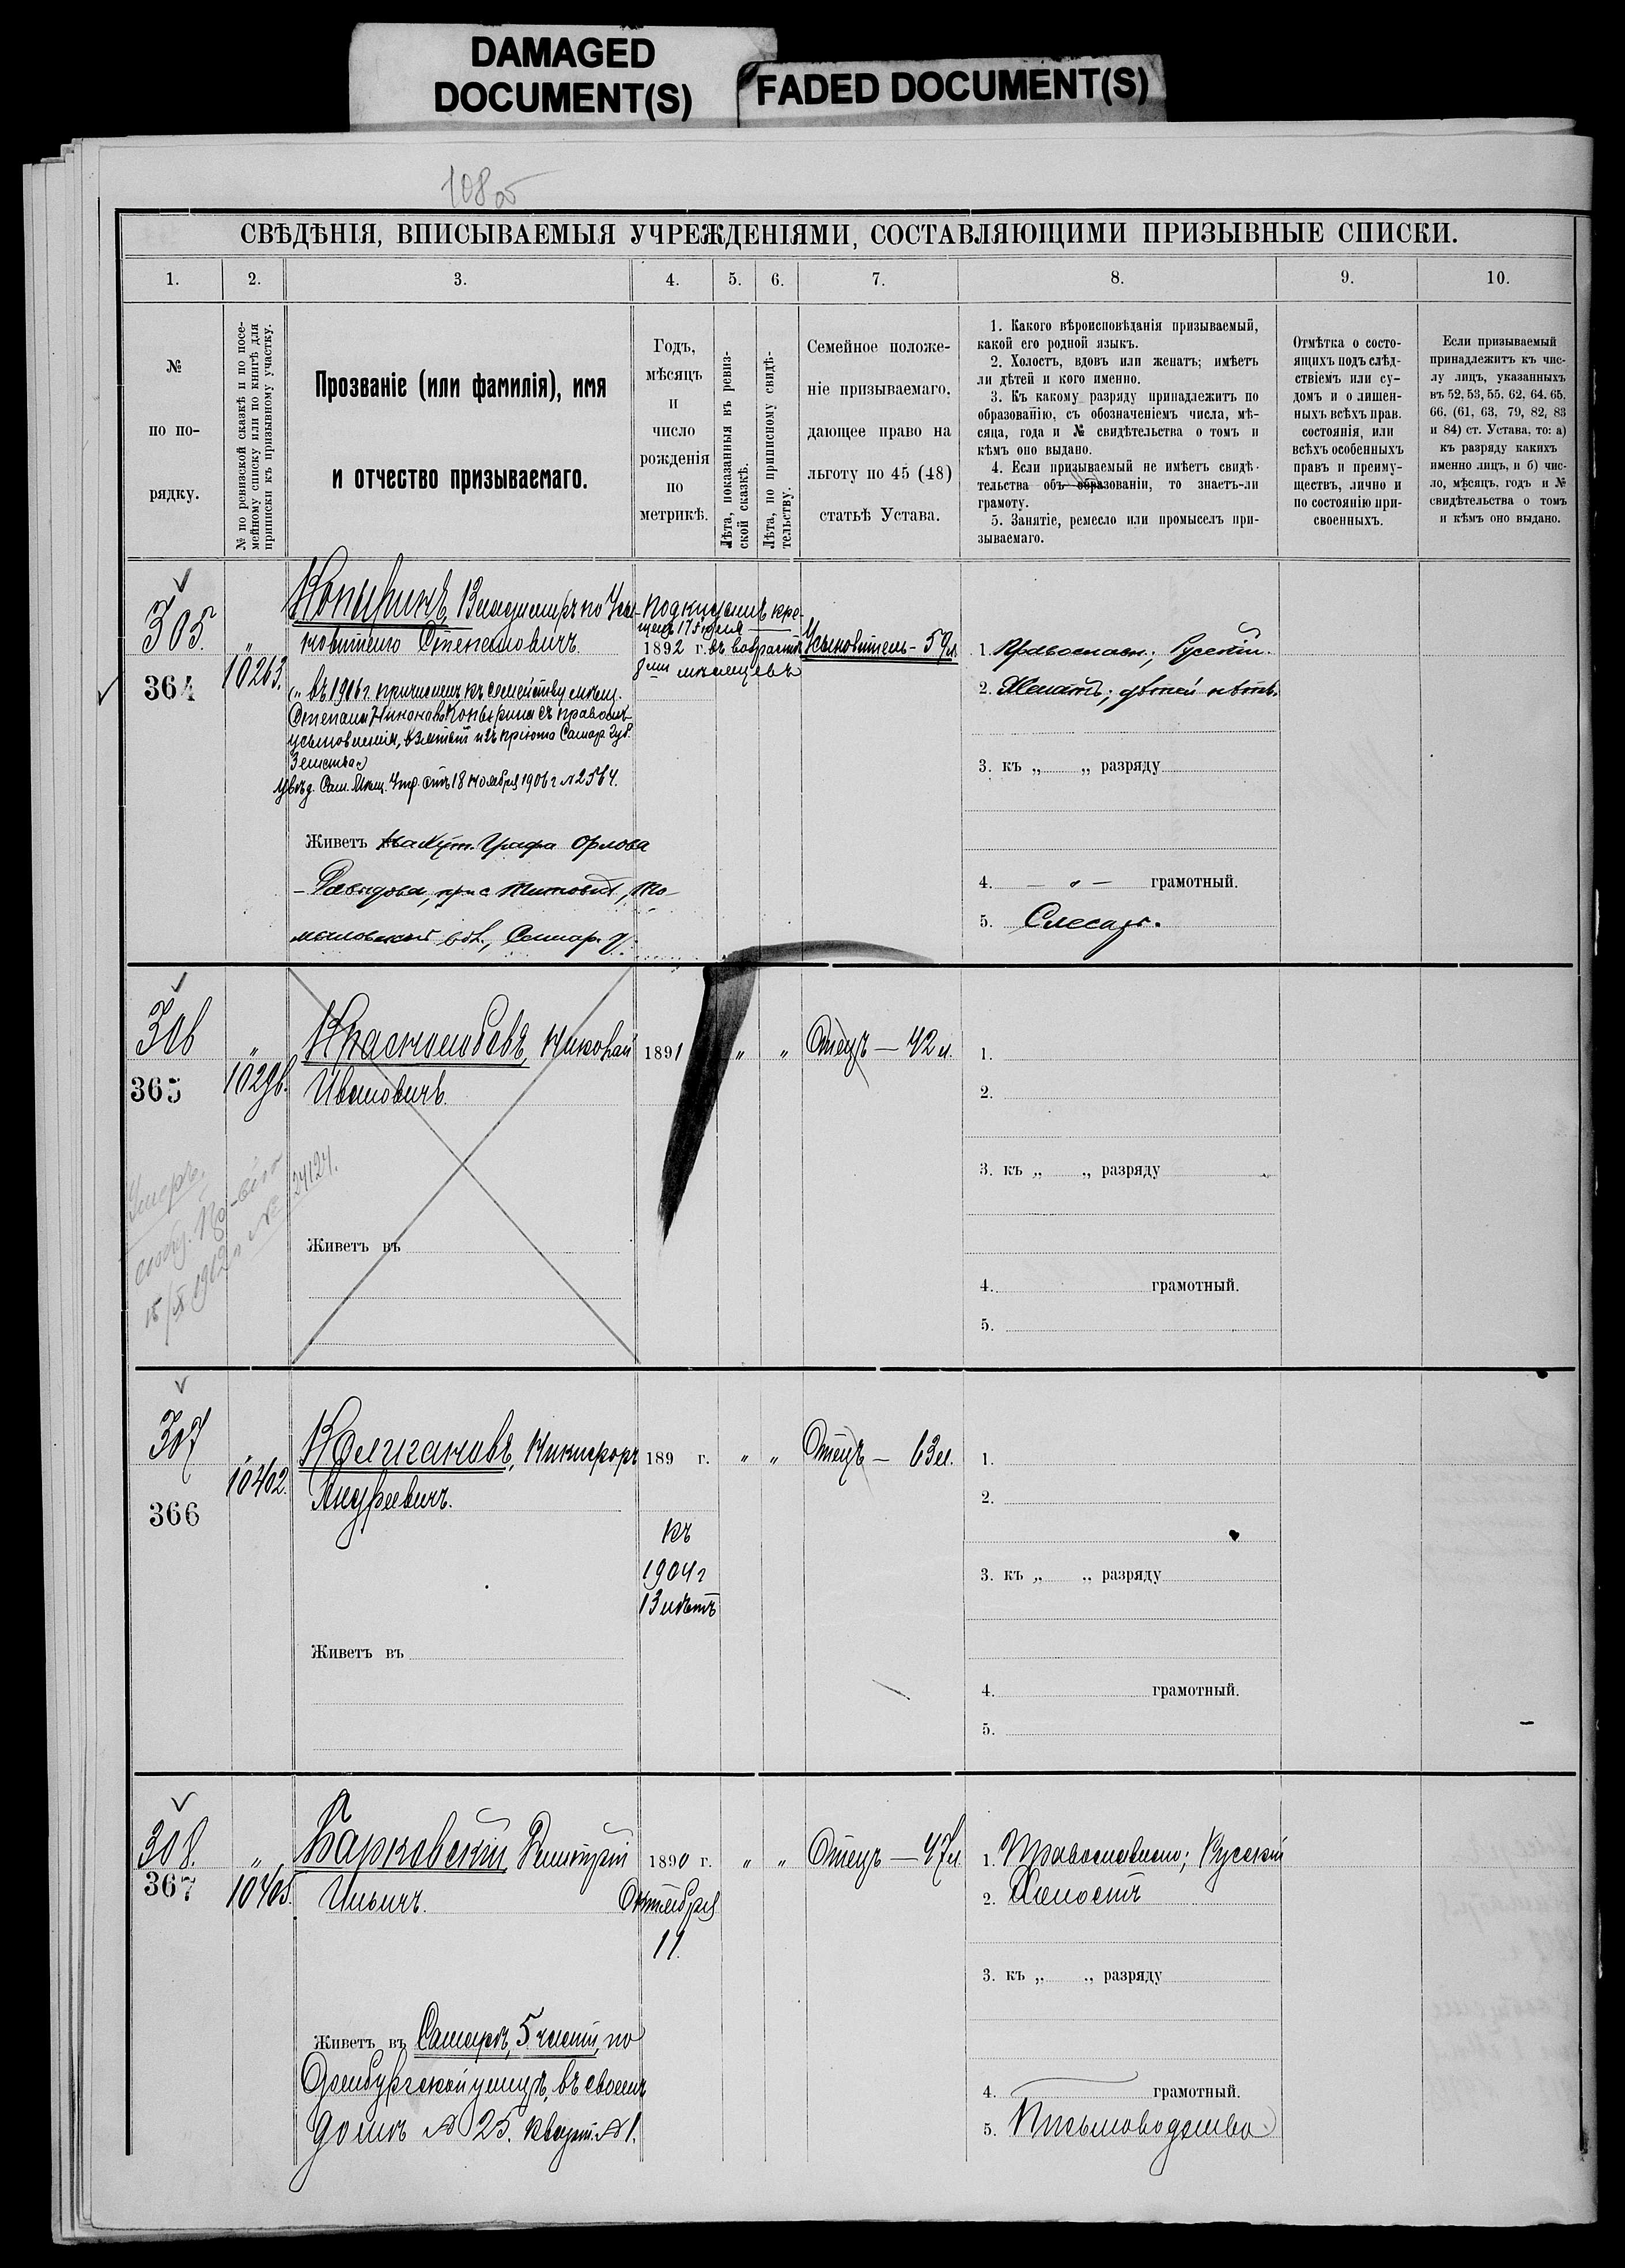 DAMAGED
DOCUMENT(S)
FADED DOCUMENT(S)
108 об
СВѢДѢНІЯ, ВПИСЫВАЕМЫЯ УЧРЕЖДЕНІЯМИ, СОСТАВЛЯЮЩИМИ ПРИЗЫВНЫЕ СПИСКИ.
1. 2. 3. 4. 5. 6. 7. 8. 9. 10.
№
по по-
рядку.
№ по ревизской сказкѣ и по посе-
мейному списку или по книгѣ для
приписки къ призывному участку.
Прозваніе (или фамилія), имя
и отчество призываемаго.
Годъ,
мѣсяцъ
и
число
рожденія
по
метрикѣ.
Лѣта, показанныя въ ревиз-
ской сказкѣ.
Лѣта, по приписному свидѣ-
тельству.
Семейное положе-
ніе призываемаго,
дающее право на
льготу по 45 (48)
статьѣ Устава.
1. Какого вѣроисповѣданія призываемый,
какой его родной языкъ.
2. Холостъ, вдовъ или женатъ; имѣетъ
ли дѣтей и кого именно.
3. Къ какому разряду принадлежитъ по
образованію, съ обозначеніемъ числа, мѣ-
сяца, года и № свидѣтельства о томъ и
кѣмъ оно выдано.
4. Если призываемый не имѣетъ свидѣ-
тельства объ образованіи, то знаетъ-ли
грамоту.
5. Занятіе, ремесло или промыселъ при-
зываемаго.
Отмѣтка о состо-
ящихъ подъ слѣд-
ствіемъ или су-
домъ и о лишен-
ныхъ всѣхъ прав.
состоянія, или
всѣхъ особенныхъ
правъ и преиму-
ществъ, лично и
по состоянію при-
своенныхъ.
Если призываемый
принадлежитъ къ чис-
лу лицъ, указанныхъ
въ 52, 53, 55. 62, 64. 65,
66, (61, 63, 79, 82, 83
и 84) ст. Устава, то: а)
къ разряду какихъ
именно лицъ, и б) чис-
ло, мѣсяцъ, годъ и №
свидѣтельства о томъ
и кѣмъ оно выдано.
305.
364
"
10263.
Копыринъ, Владимиръ по Усы-
новителю Степановичъ.
(„ въ 1906 г. причисленъ къ семейству мѣщ.
Степана Никонова Копырина съ правомъ
усыновленія, взятый изъ пріюта Самар. Губ.
Земства)
Увѣд. Сам. Мѣщ. Упр. отъ 18 ноября 1906 г №2564.
Живетъ Графа Орлова
- Давыдова, при с
вол., Самар. у.
Подкидышъ кре-
щенъ 17
1892 г. въ возрастѣ
8ми мѣсяцевъ
Усыновитель - 59 л.
1. Православн.; Русскій.
2. Женатъ; дѣтей нѣтъ.
3. къ „ „ разряду
4. — „ — грамотный.
5. Слесарь.
306
365
"
10296.
Краснолобовъ, Николай
Ивановичъ.
1891
" "
Отецъ — 42 л.
Умеръ
15/X 1912 г. № 24124.
Живетъ въ
1.
2.
3. къ „ „ разряду
4. грамотный.
5.
307
366
"
10402.
Колчановъ, Никифоръ
Андреевичъ.
189 г.
къ
1904 г
13 лѣтъ
" "
Отецъ — 63 л.
Живетъ въ
1.
2.
3. къ „ „ разряду
4. грамотный.
5.
308.
367
"
10405.
Барковскій Димитрій
Ильичъ.
1890 г.
Октября
11.
" "
Отецъ — 47 л
Живетъ въ Самарѣ, 5 части, по
Оренбургской улицѣ, въ своемъ
домѣ № 25. Кварт. № 1.
1. Православное; Русскій
2. Холостъ
3. къ „ „ разряду
4. грамотный.
5. Письмоводство